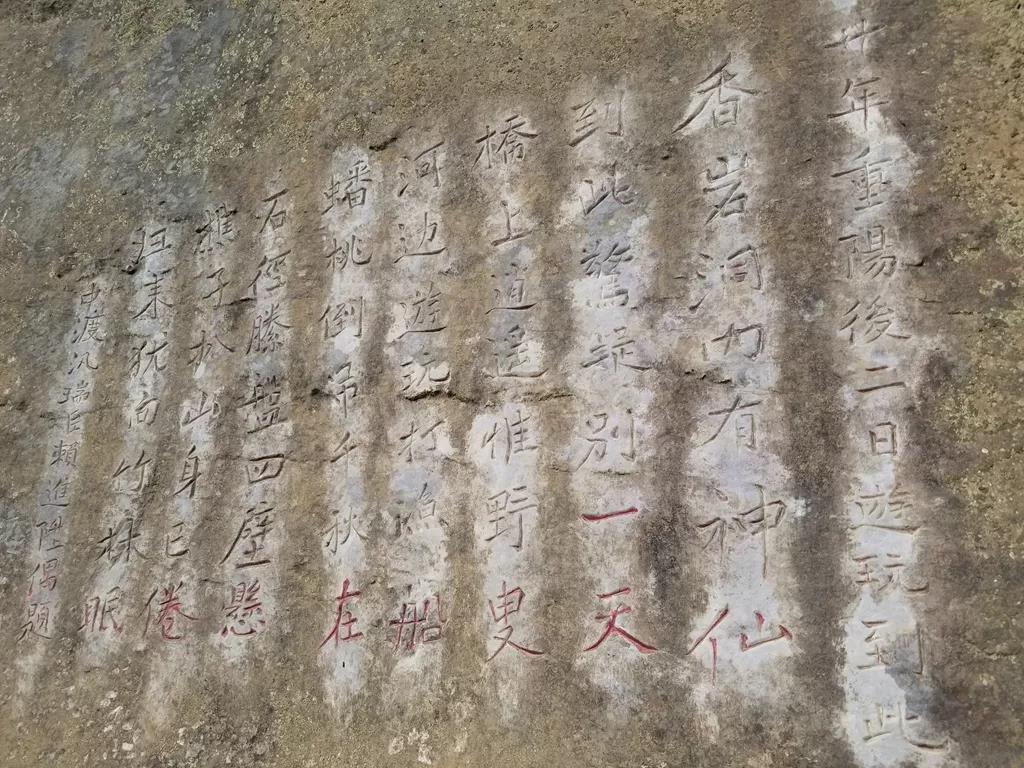 廿年重陽後二日遊玩到此
香岩洞内有神仙
到此驚疑別一天
橋上逍遥惟野叟
河边遊玩打鴻船
蟠桃倒吊千秋在
石徑籐盤四壁懸
樵子於山身已倦
归来犹向竹林眠
中渡汛瑞臣賴進陞偶題